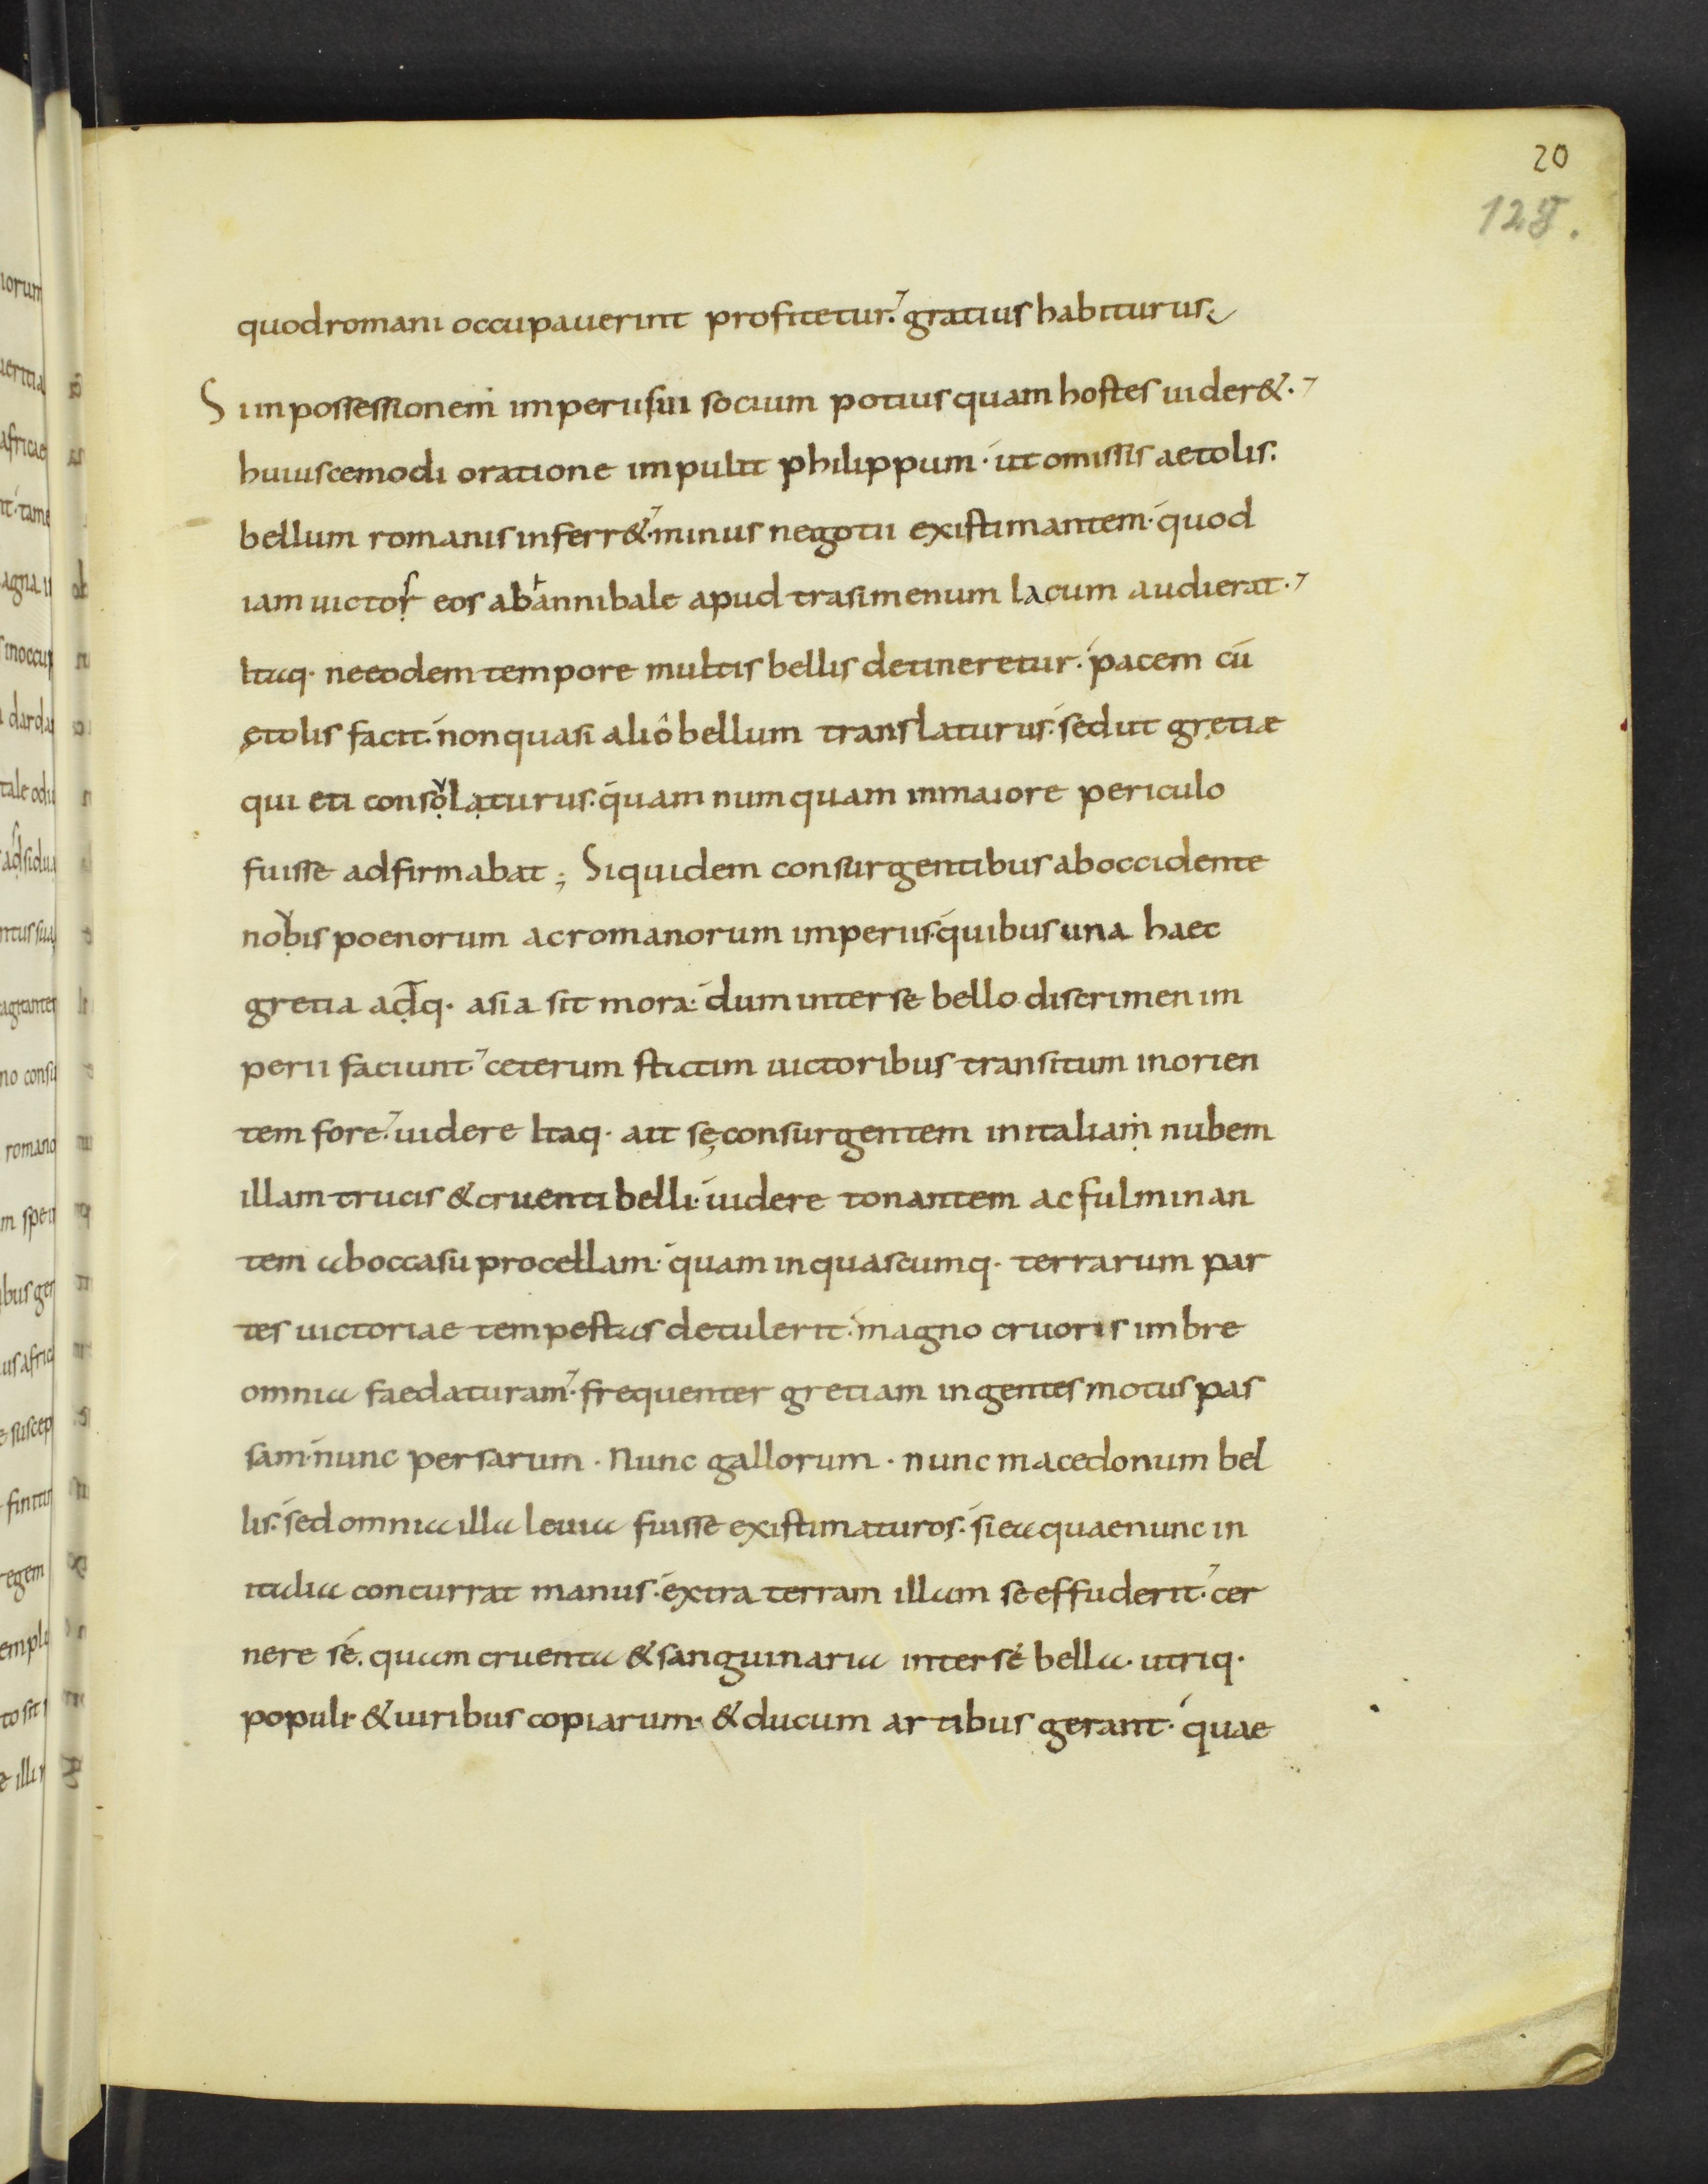 20
128.
quod romani occupauerint profitetur. gratius habiturus;
Si in possessionem imperii sui socium potius quam hostes uider&.
huiuscemodi oratione impulit philippum. ut omissis aetolis.
bellum romanis inferr&. minus negotii existimantem. quod
iam uictos eos ab hannibale apud trasimenum lacum audierat.
Itaq. ne eodem tempore multis bellis detineretur. pacem cū
etolis facit. non quasi alio bellum translaturus. sed ut gretiæ
qui eti consolaturus. quam numquam in maiore periculo
fuisse adfirmabat; Siquidem consurgentibus ab occidente
nouis poenorum ac romanorum imperiis. quibus una haec
gretia adq. asia sit mora. dum inter se bello discrimen im
perii faciunt. ceterum statim uictoribus transitum in orien
tem fore. uidere Itaq. ait se consurgentem in italia nubem
illam trucis & cruenti belli. uidere tonantem ac fulminan
tem ab occasu procellam. quam in quascumq. terrarum par
tes uictoriae tempestas detulerit. magno cruoris imbre
omnia faedaturam. frequenter gretiam ingentes motus pas
sam. nunc persarum. Nunc gallorum. nunc macedonum bel
lis. sed omnia illa leuia fuisse existimaturos. si ea quae nunc in
italia concurrat manus. extra terram illam se effuderit. cer
nere sé. quam cruenta & sanguinaria inter sé bella. utriq.
populi & uiribus copiarum. & ducum artibus gerant. quae